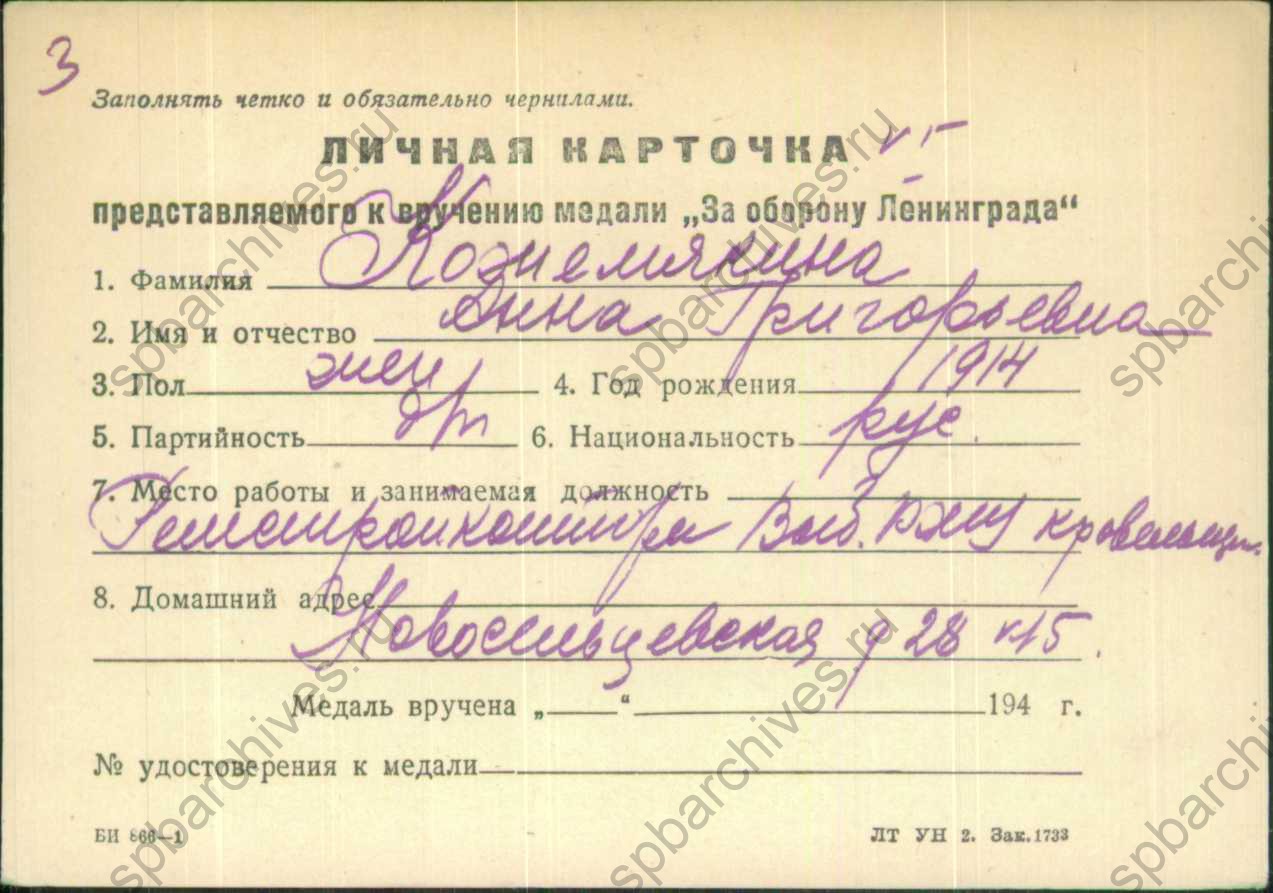 3
Заполнять четко и обязательно чернилами.
ЛИЧНАЯ КАРТОЧКА
представляемого к вручению медали „За оборону Ленинграда“
1. Фамилия Кожемякина
2. Имя и отчество Анна Григорьевна
3. Пол жен 4. Год рождения 1914
5. Партийность б/п 6. Национальность рус.
7. Место работы и занимаемая должность
Ремстройконтора Выб. РЖУ кровельщ.
8. Домашний адрес
Новосельцевская д 28 к 15.
Медаль вручена „ “ 194 г.
№ удостоверения к медали
БИ 866—1 ЛТ УН 2. Зак. 1733
spbarchives.ru
spbarchives.ru
spbarchives.ru
spbarchives.ru